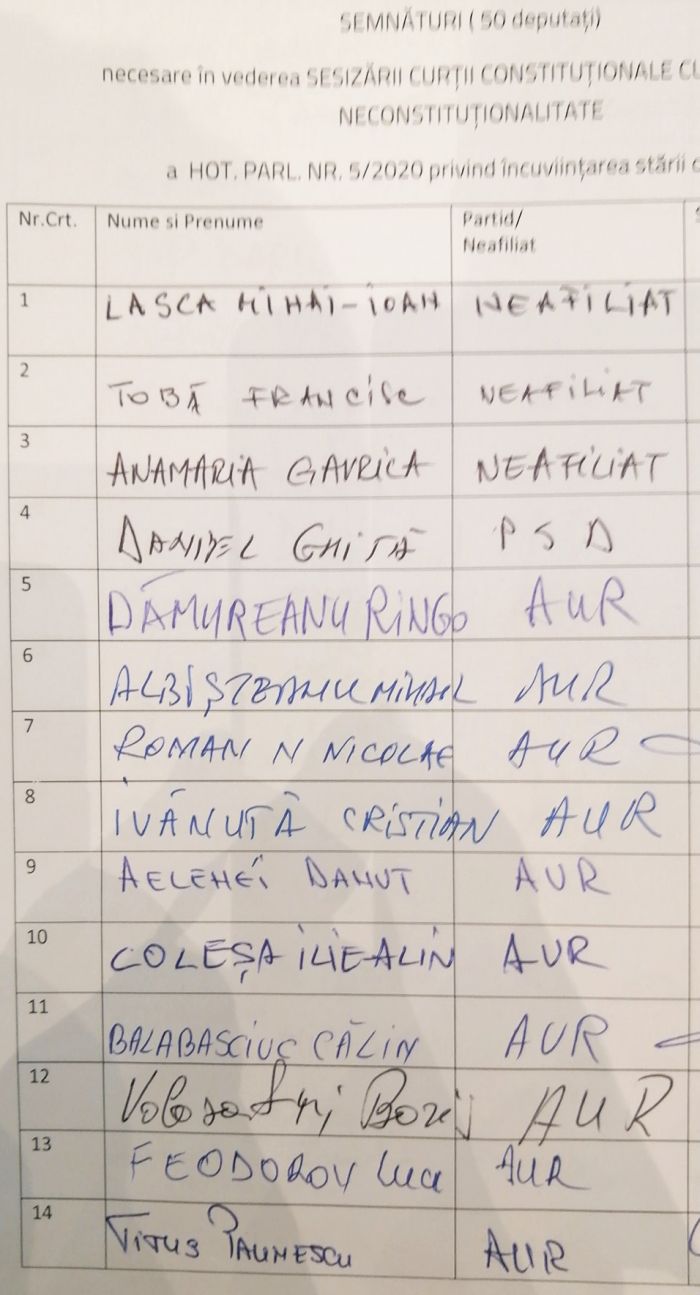 SEMNĂTURI ( 50 deputați)
necesare în vederea SESIZĂRII CURȚII CONSTITUȚIONALE CU
NECONSTITUȚIONALITATE
a HOT. PARL. NR. 5/2020 privind încuviințarea stării
Nr.Crt. Nume si Prenume Partid/
Neafiliat
1 LASCA MIHAI-IOAN NEAFILIAT
2 TOBĂ FRANCISC NEAFILIAT
3 ANAMARIA GAVRILA NEAFILIAT
4 DANIEL GHITĂ PSD
5 DĂMUREANU RINGO AUR
6 ALBIȘTEANU MIHAIL AUR
7 ROMAN N NICOLAE AUR
8 IVĂNUȚĂ CRISTIAN AUR
9 AELENEI DANUT AUR
10 COLEȘA ILIE-ALIN AUR
11 BALABASCIUC CĂLIN AUR
12 AUR
13 FEODOROV Luca AUR
14 TITUS PAUNESCU AUR